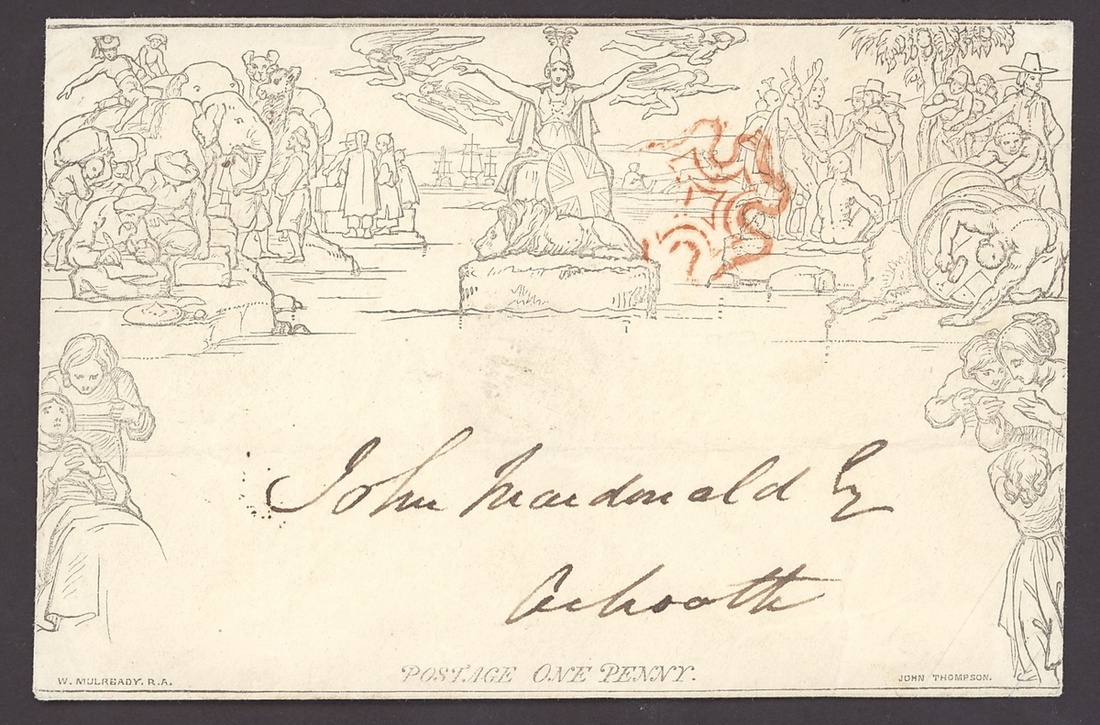 John Macdonald Esq
POSTAGE ONE PENNY.
W. MULREADY. R.A.
JOHN THOMPSON.